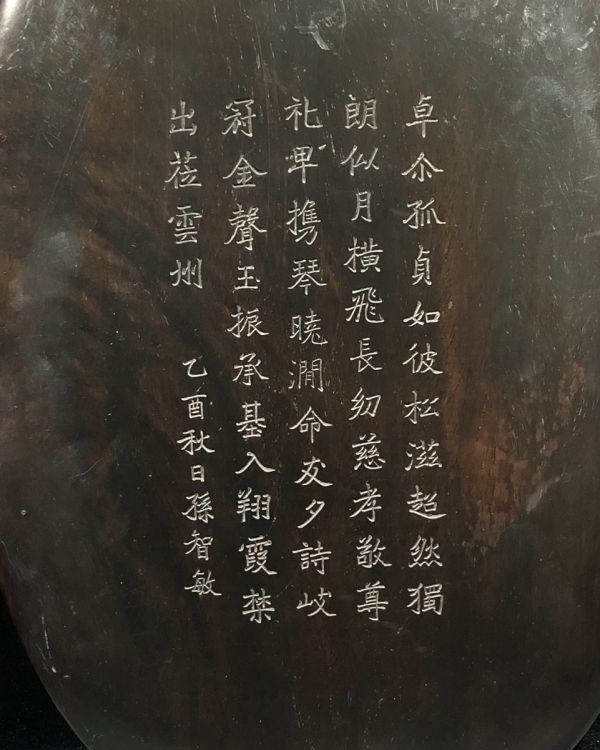 卓尒孤貞如彼松滋超然獨
朗似月橫飛長幼慈孝敬尊
礼卑携琴曉澗命友夕詩岐
冠金聲玉振承基入翔霞禁
出莅雲州
乙酉秋日孫智敏